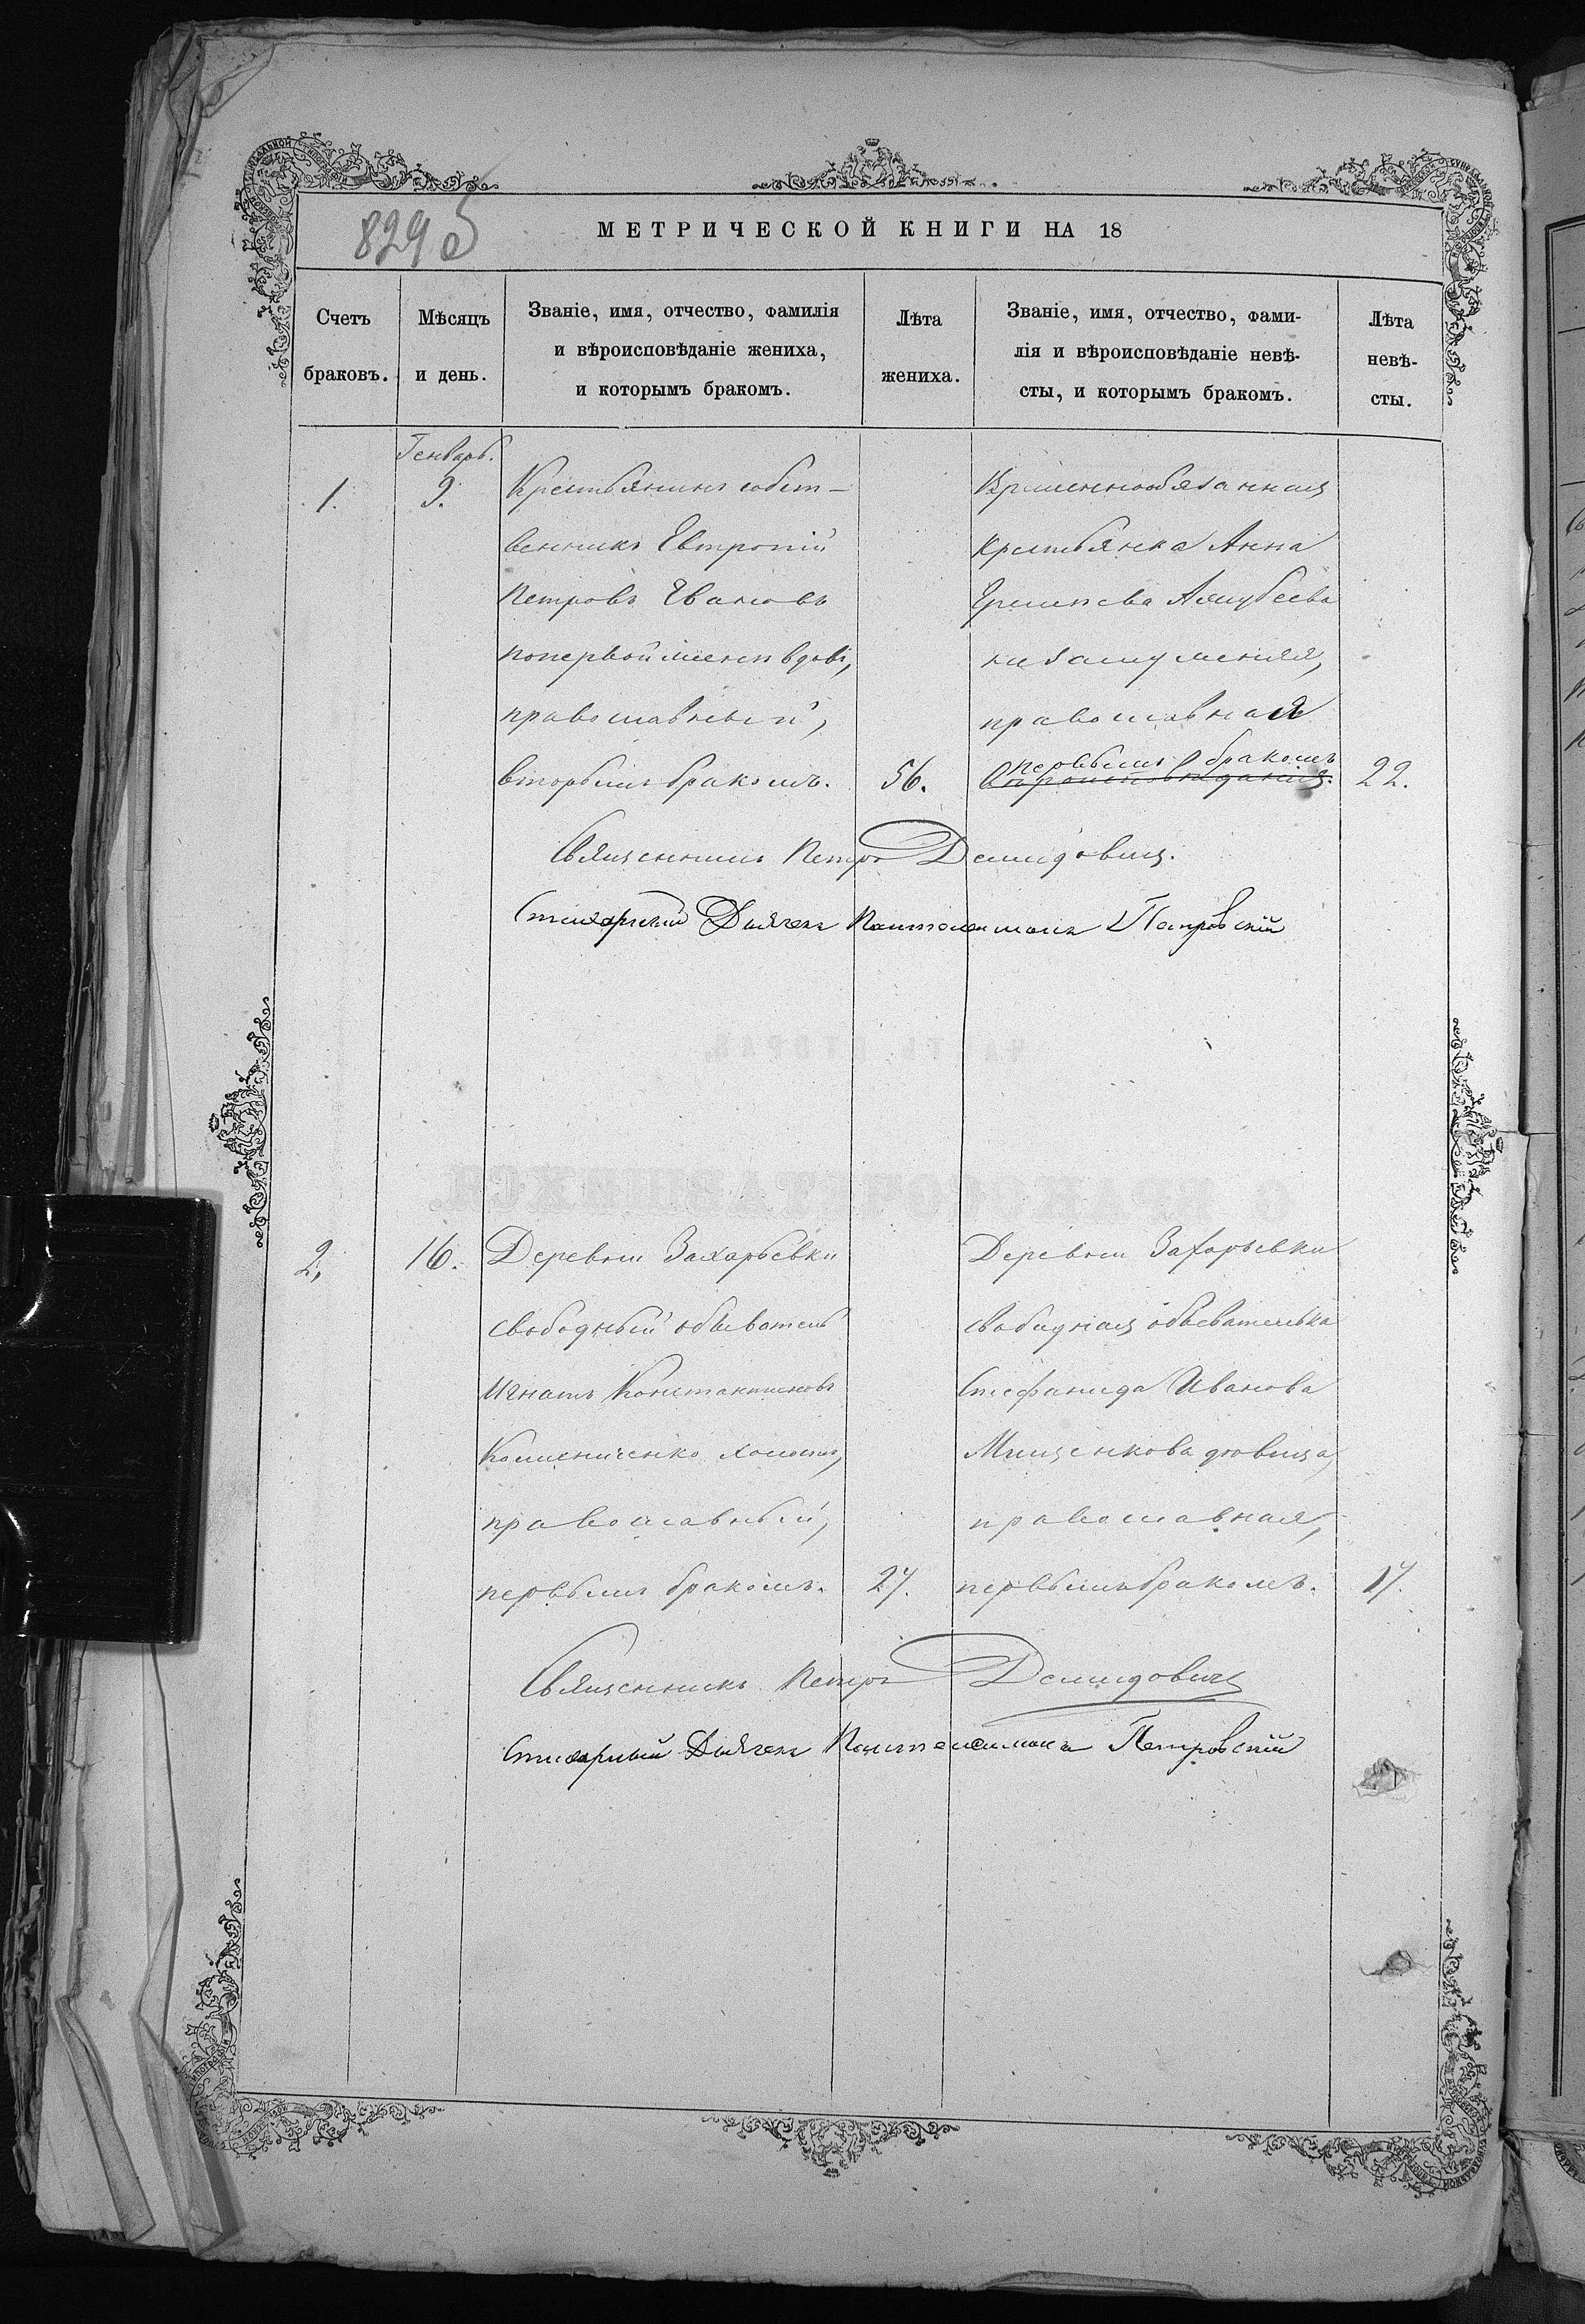 829 об
МЕТРИЧЕСКОЙ КНИГИ НА 18
Счетъ браковъ.
Мѣсяцъ и день.
Званіе, имя, отчество, фамилія
и вѣроисповѣданіе жениха,
и которымъ бракомъ.
Лѣта жениха.
Званіе, имя, отчество, фами-
лія и вѣроисповѣданіе невѣ-
сты, и которымъ бракомъ.
Лѣта невѣ-
сты.
Генварь.
1. 9. Крестьянинъ собст-
венникъ Евтропій
Петровъ Ивановъ
по первой женѣ вдовъ,
православный,
вторымъ бракомъ. 56.
Временнообязанная
крестьянка Анна
незамужняя,
православная
первымъ бракомъ
вѣроисповѣданія. 22.
Священникъ Петръ Демидовичъ.
Стихарный Дьячекъ Пантелеимонъ Петровскій
2, 16. Деревни Захарьевки
свободный обыватель
Игнатъ Константиновъ
холостъ,
православный,
первымъ бракомъ. 27.
Деревни Захарьевки
свободная обывателька
Стефанида Иванова
Мищенкова дѣвица,
православная,
первымъ бракомъ. 17.
Священникъ Петръ Демидовичъ
Стихарный Дьячекъ Пантелеимонъ Петровскій